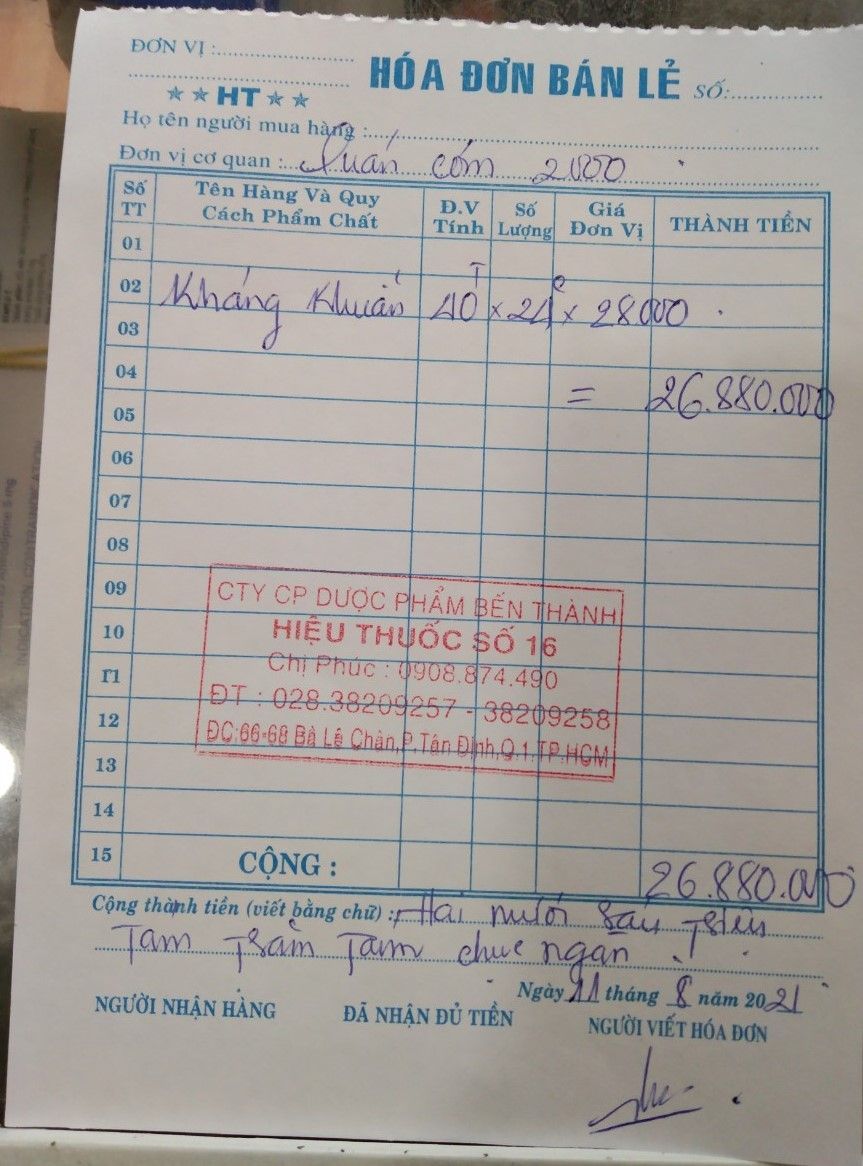 ĐƠN VỊ :
HÓA ĐƠN BÁN LẺ SỐ:
★ ★ HT ★ ★
Họ tên người mua hàng :
Đơn vị cơ quan : Quán cơm 2000
Số TT Tên Hàng Và Quy Cách Phẩm Chất Đ.V Tính Số Lượng Giá Đơn Vị THÀNH TIỀN
01
02 Kháng Khuẩn 40T x 24c x 28000
03
04 = 26.880.000
05
06
07
08
09
CTY CP DƯỢC PHẨM BẾN THÀNH
10 HIỆU THUỐC SỐ 16
11 Chị Phúc : 0908.874.490
ĐT : 028.38209257 - 38209258
12
ĐC:66-68 Bà Lê Chân,P.Tân Định,Q.1,TP.HCM
13
14
15 CỘNG : 26.880.000
Cộng thành tiền (viết bằng chữ) : Hai mươi sáu triệu
Tám trăm Tám chục ngàn
Ngày 11 tháng 8 năm 2021
NGƯỜI NHẬN HÀNG ĐÃ NHẬN ĐỦ TIỀN NGƯỜI VIẾT HÓA ĐƠN